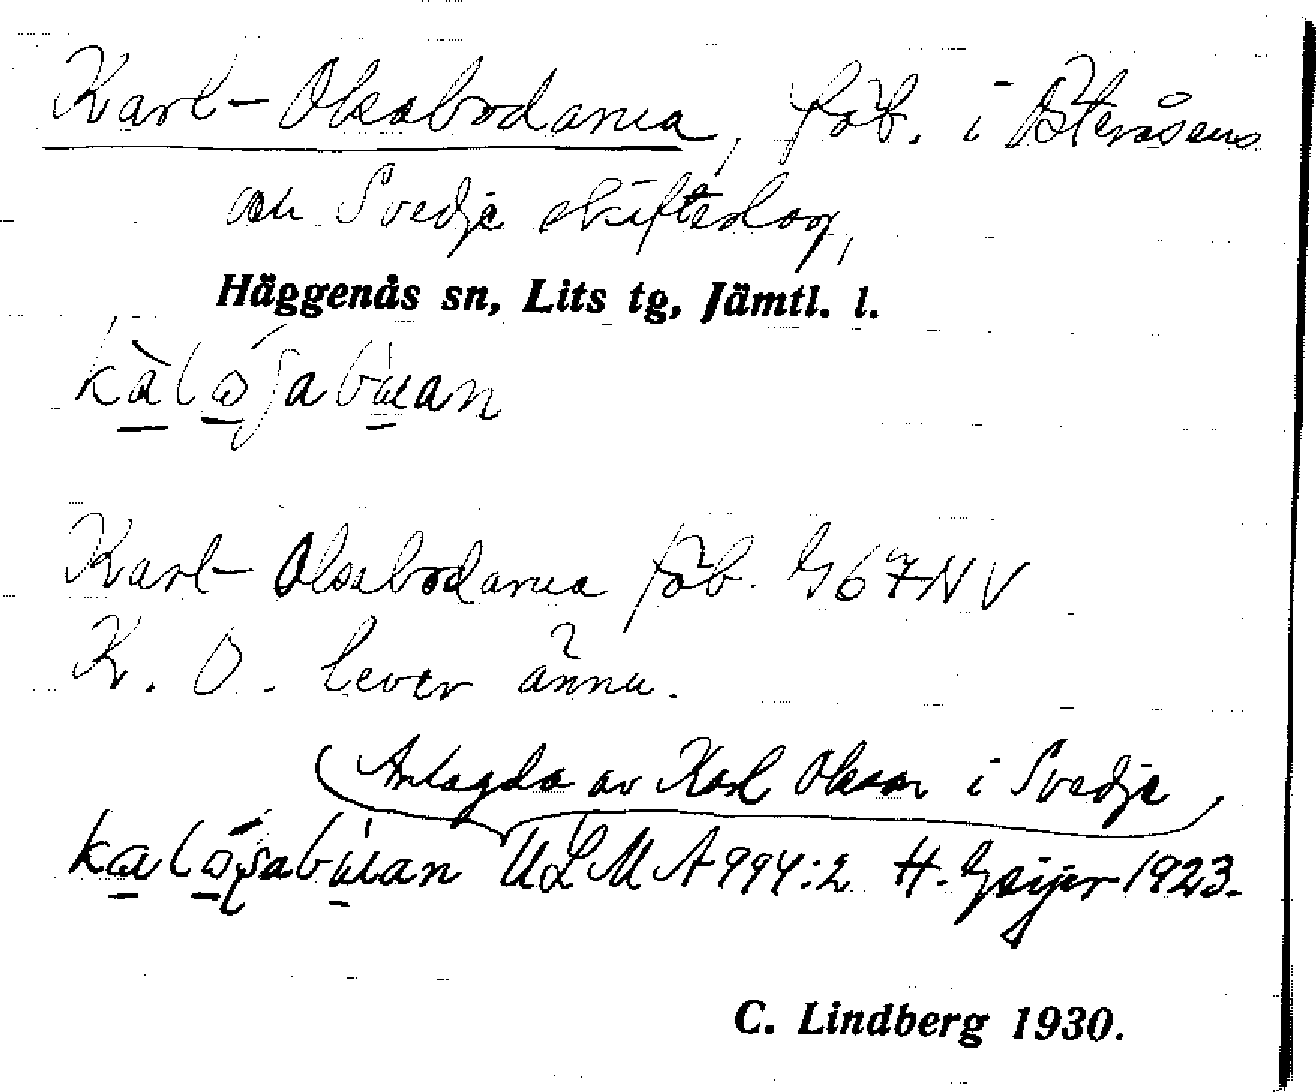 Karl-Olsabodarna, fäb. i Österåsens
och Svedje skifteslag,
Häggenås sn, Lits tg, Jämtl. l.
Karl-Olsabodarna fäb. G67NV
K. O. lever ännu.
(Anlagda av Karl Olsson i Svedje)
ULMA 994:2 H. Geijer 1923.
C. Lindberg 1930.